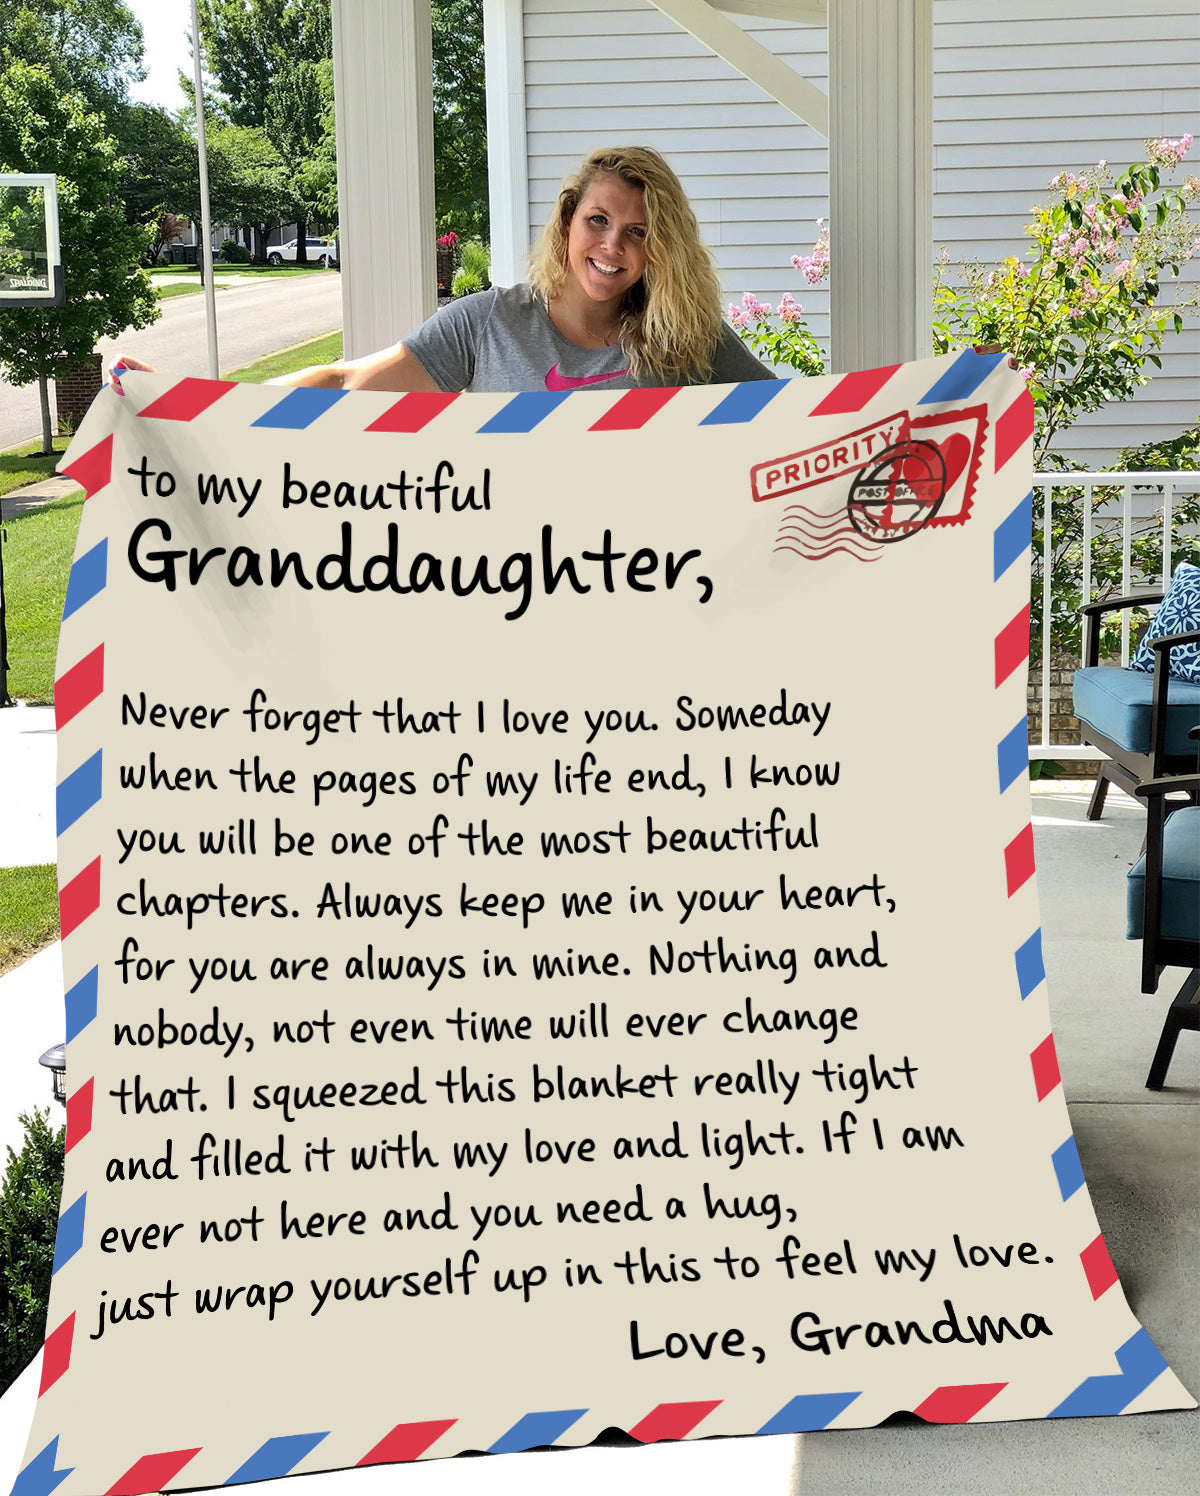 SPALDING
PRIORITY
POST OFFICE
to my beautiful
Granddaughter,
Never forget that I love you. Someday
when the pages of my life end, I know
you will be one of the most beautiful
chapters. Always keep me in your heart,
for you are always in mine. Nothing and
nobody, not even time will ever change
that. I squeezed this blanket really tight
and filled it with my love and light. If I am
ever not here and you need a hug,
just wrap yourself up in this to feel my love.
Love, Grandma